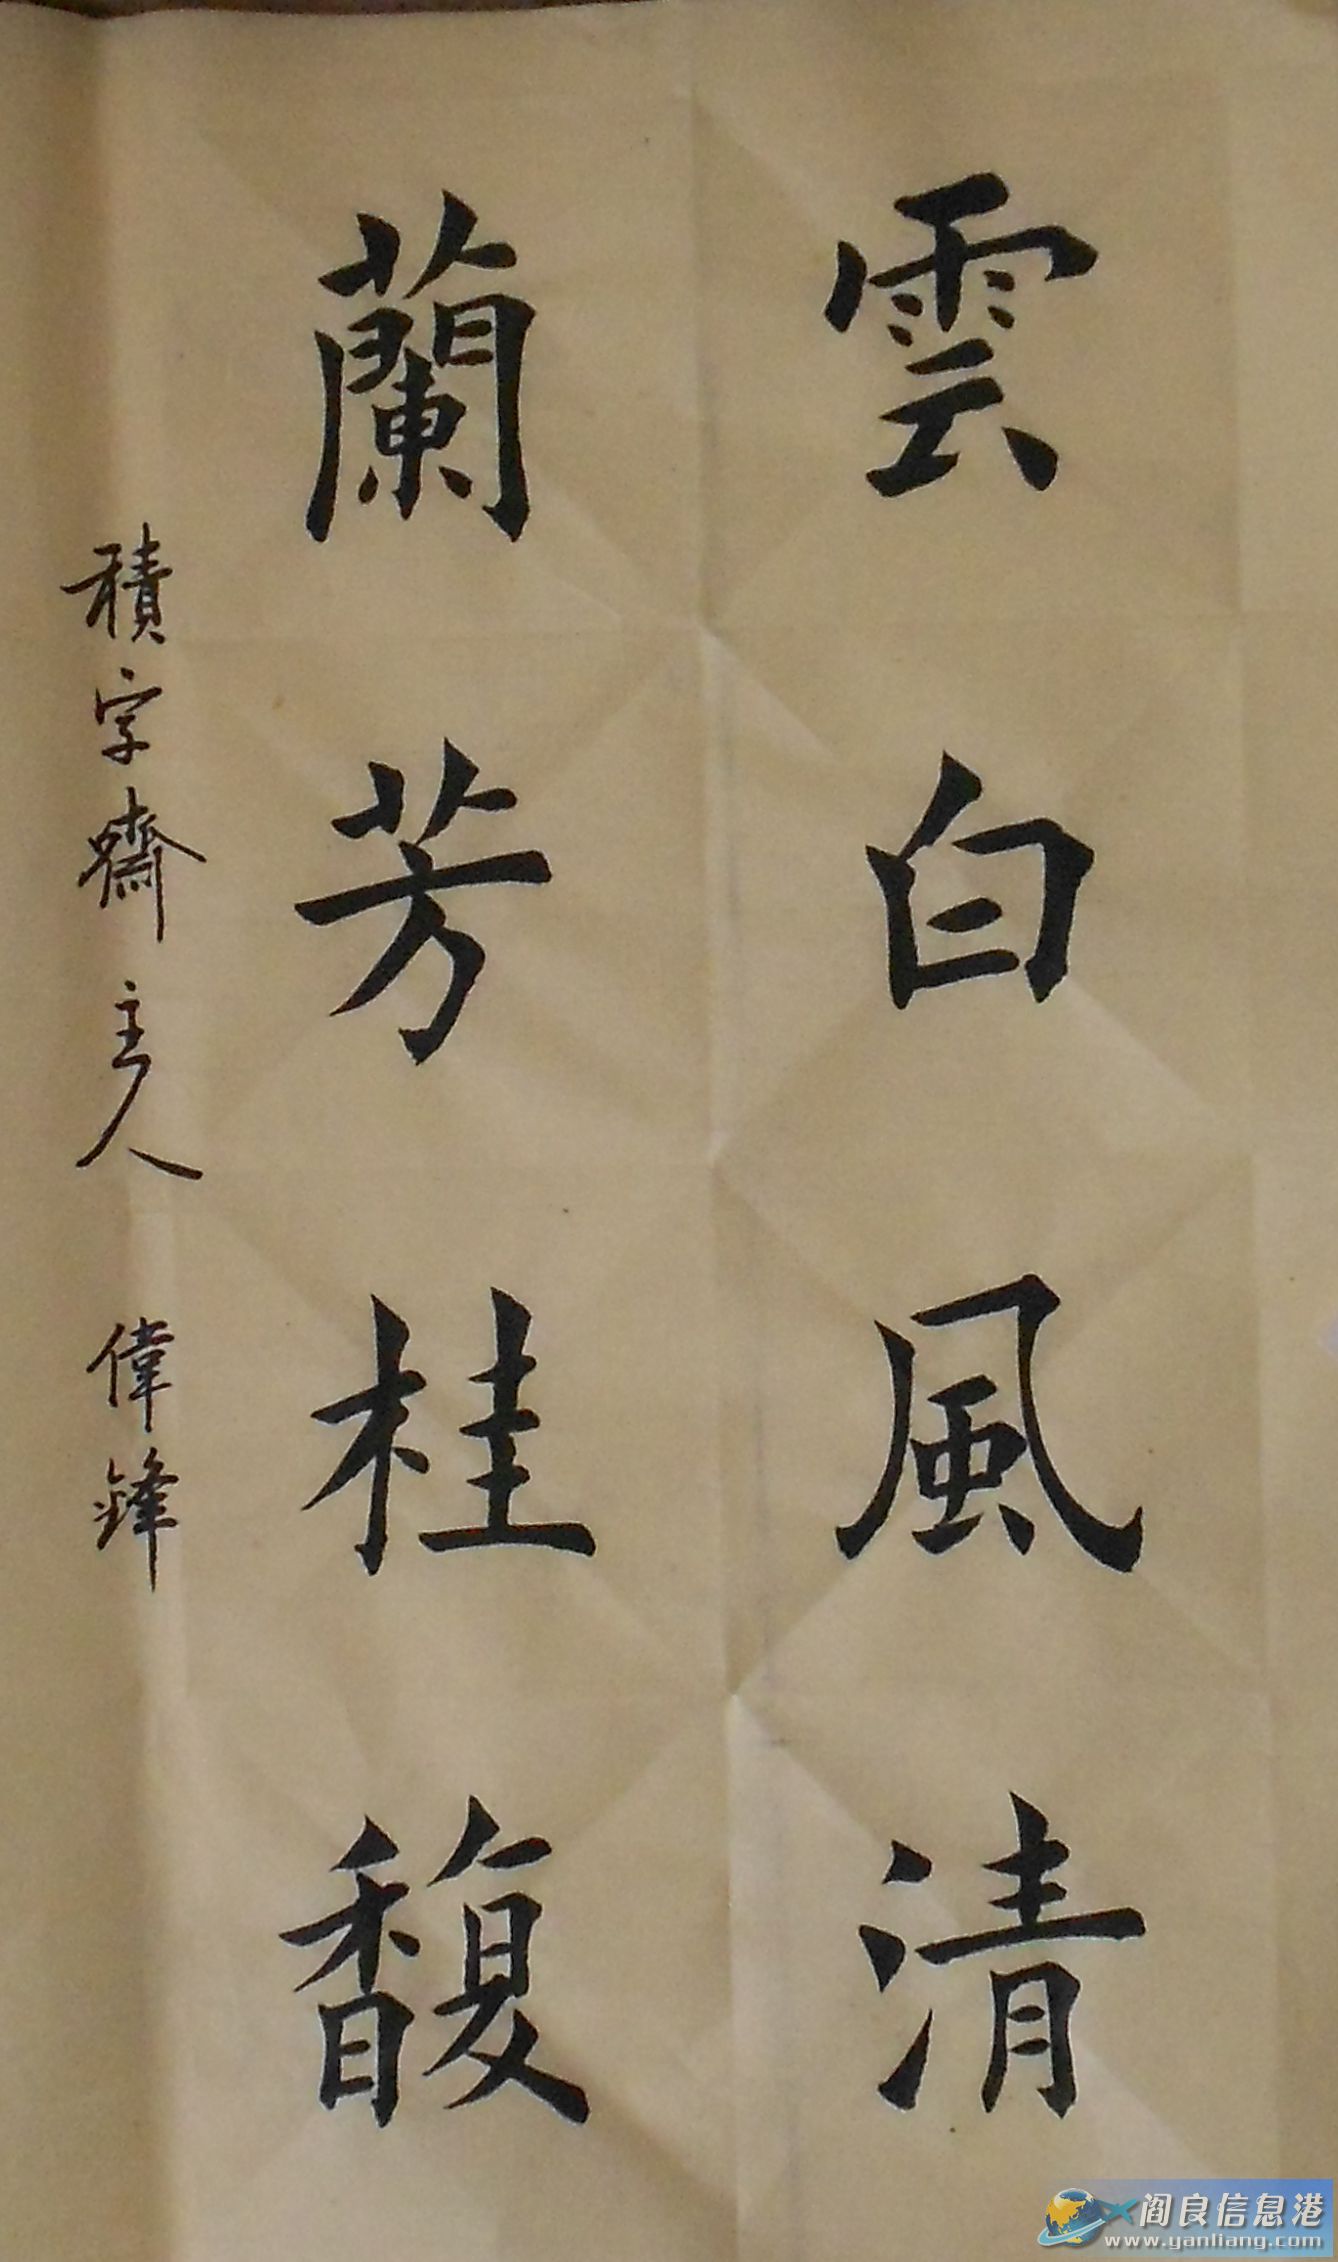 雲白風清
蘭芳桂馥
積字齋主人 偉鋒
阎良信息港
www.yanliang.com